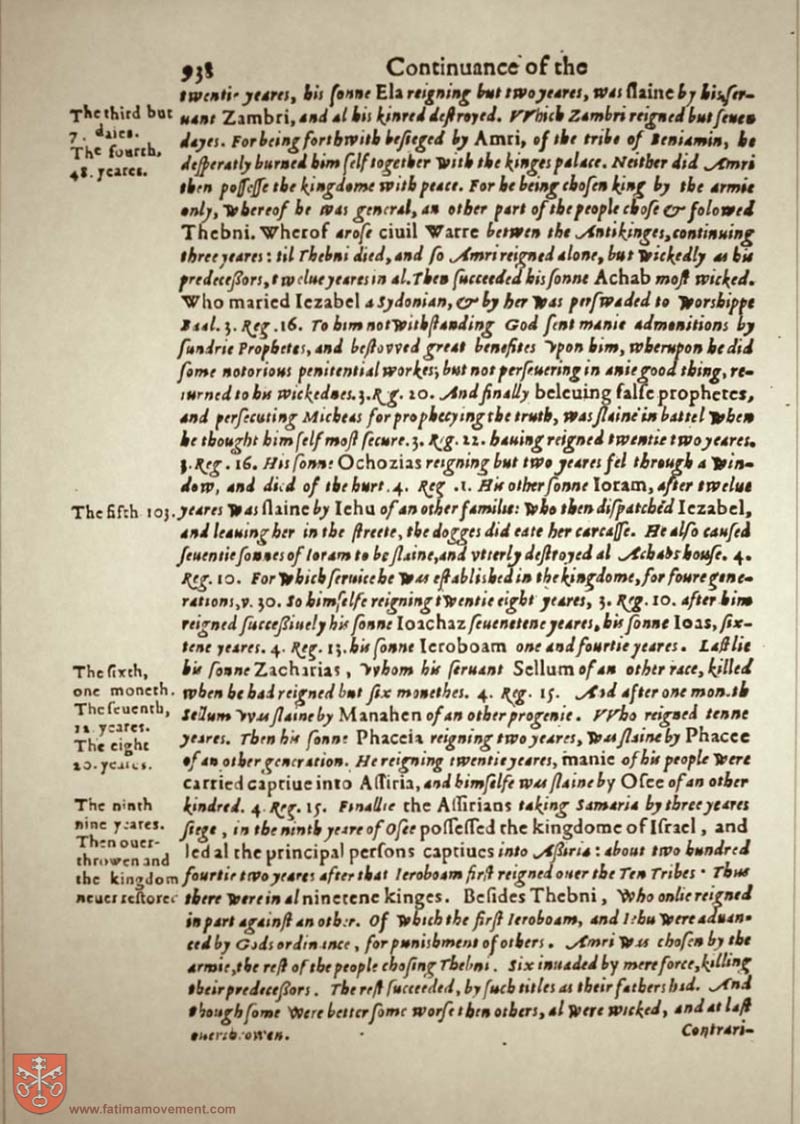 938 Continuance of the
twentie yeares, his sonne Ela reigning but two yeares, was slaine by his ser-
uant Zambri, and al his kinred destroyed. VVhich Zambri reigned but seuen
dayes. For being forthwith besieged by Amri, of the tribe of Beniamin, he
desperatly burned him self together with the kinges palace. Neither did Amri
then possesse the kingdome with peace. For he being chosen king by the armie
only, whereof he was general, an other part of the people chose & folowed
Thebni. Wherof arose ciuil Warre betwen the Antikinges, continuing
three yeares: til Thebni died, and so Amri reigned alone, but wickedly as his
predecessors, twelue yeares in al. Then succeeded his sonne Achab most wicked.
Who maried Iezabel a Sydonian, & by her was perswaded to worshippe
Baal. 3. Reg. 16. To him notwithstanding God sent manie admonitions by
sundrie Prophetes, and bestovved great benefites vpon him, wherupon he did
some notorious penitential workes; but not perseuering in anie good thing, re-
turned to his wickednes. 3. Rg. 20. And finally beleuing false prophetes,
and persecuting Micheas for prophecying the truth, was slaine in battel when
he thought him self most secure. 3. Rg. 22. hauing reigned twentie two yeares.
3. Reg. 16. His sonne Ochozias reigning but two yeares fel through a win-
dow, and died of the hurt. 4. Reg. 1. His other sonne Ioram, after twelue
yeares was slaine by Iehu of an other familie: who then dispatched Iezabel,
and leauing her in the streete, the dogges did eate her carcasse. He also caused
seuentie sonnes of Ioram to be slaine, and vtterly destroyed al Achabs house. 4.
Reg. 10. For which seruice he was established in the kingdome, for foure gene-
rations, v. 30. So himselfe reigning twentie eight yeares, 3. Reg. 10. after him
reigned successiuely his sonne Ioachaz seuenetene yeares, his sonne Ioas, six-
tene yeares. 4. Reg. 13. his sonne Ieroboam one and fourtie yeares. Lastlie
his sonne Zacharias, vvhom his seruant Sellum of an other race, killed
when he had reigned but six monethes. 4. Reg. 15. And after one moneth
Sellum vvas slaine by Manahen of an other progenie. VVho reigned tenne
yeares. Then his sonne Phaceia reigning two yeares, was slaine by Phacee
of an other generation. He reigning twentie yeares, manie of his people were
carried captiue into Assiria, and himselfe was slaine by Osee of an other
kindred. 4. Reg. 15. Finallie the Assirians taking Samaria by three yeares
siege, in the ninth yeare of Osee possessed the kingdome of Israel, and
led al the principal persons captiues into Assiria: about two hundred
fourtie two yeares after that Ieroboam first reigned ouer the Ten Tribes. Thus
there were in al ninetene kinges. Besides Thebni, who onlie reigned
in part against an other. Of which the first Ieroboam, and Iehu were aduan-
ced by Gods ordinance, for punishment of others. Amri was chosen by the
armie, the rest of the people chosing Thebni. Six inuaded by mere force, killing
their predecessors. The rest succeeded, by such titles as their fathers had. And
though some were better some worse then others, al were wicked, and at last
ouerthrowen. Contrari-
The third but
7. daies.
The fourth,
48. yeares.
The fifth 103.
The sixth,
one moneth.
The seuenth,
12 yeares.
The eight
20. yeares.
The ninth
nine yeares.
Then ouer-
throwen and
the kingdom
neuer restored
www.fatimamovement.com